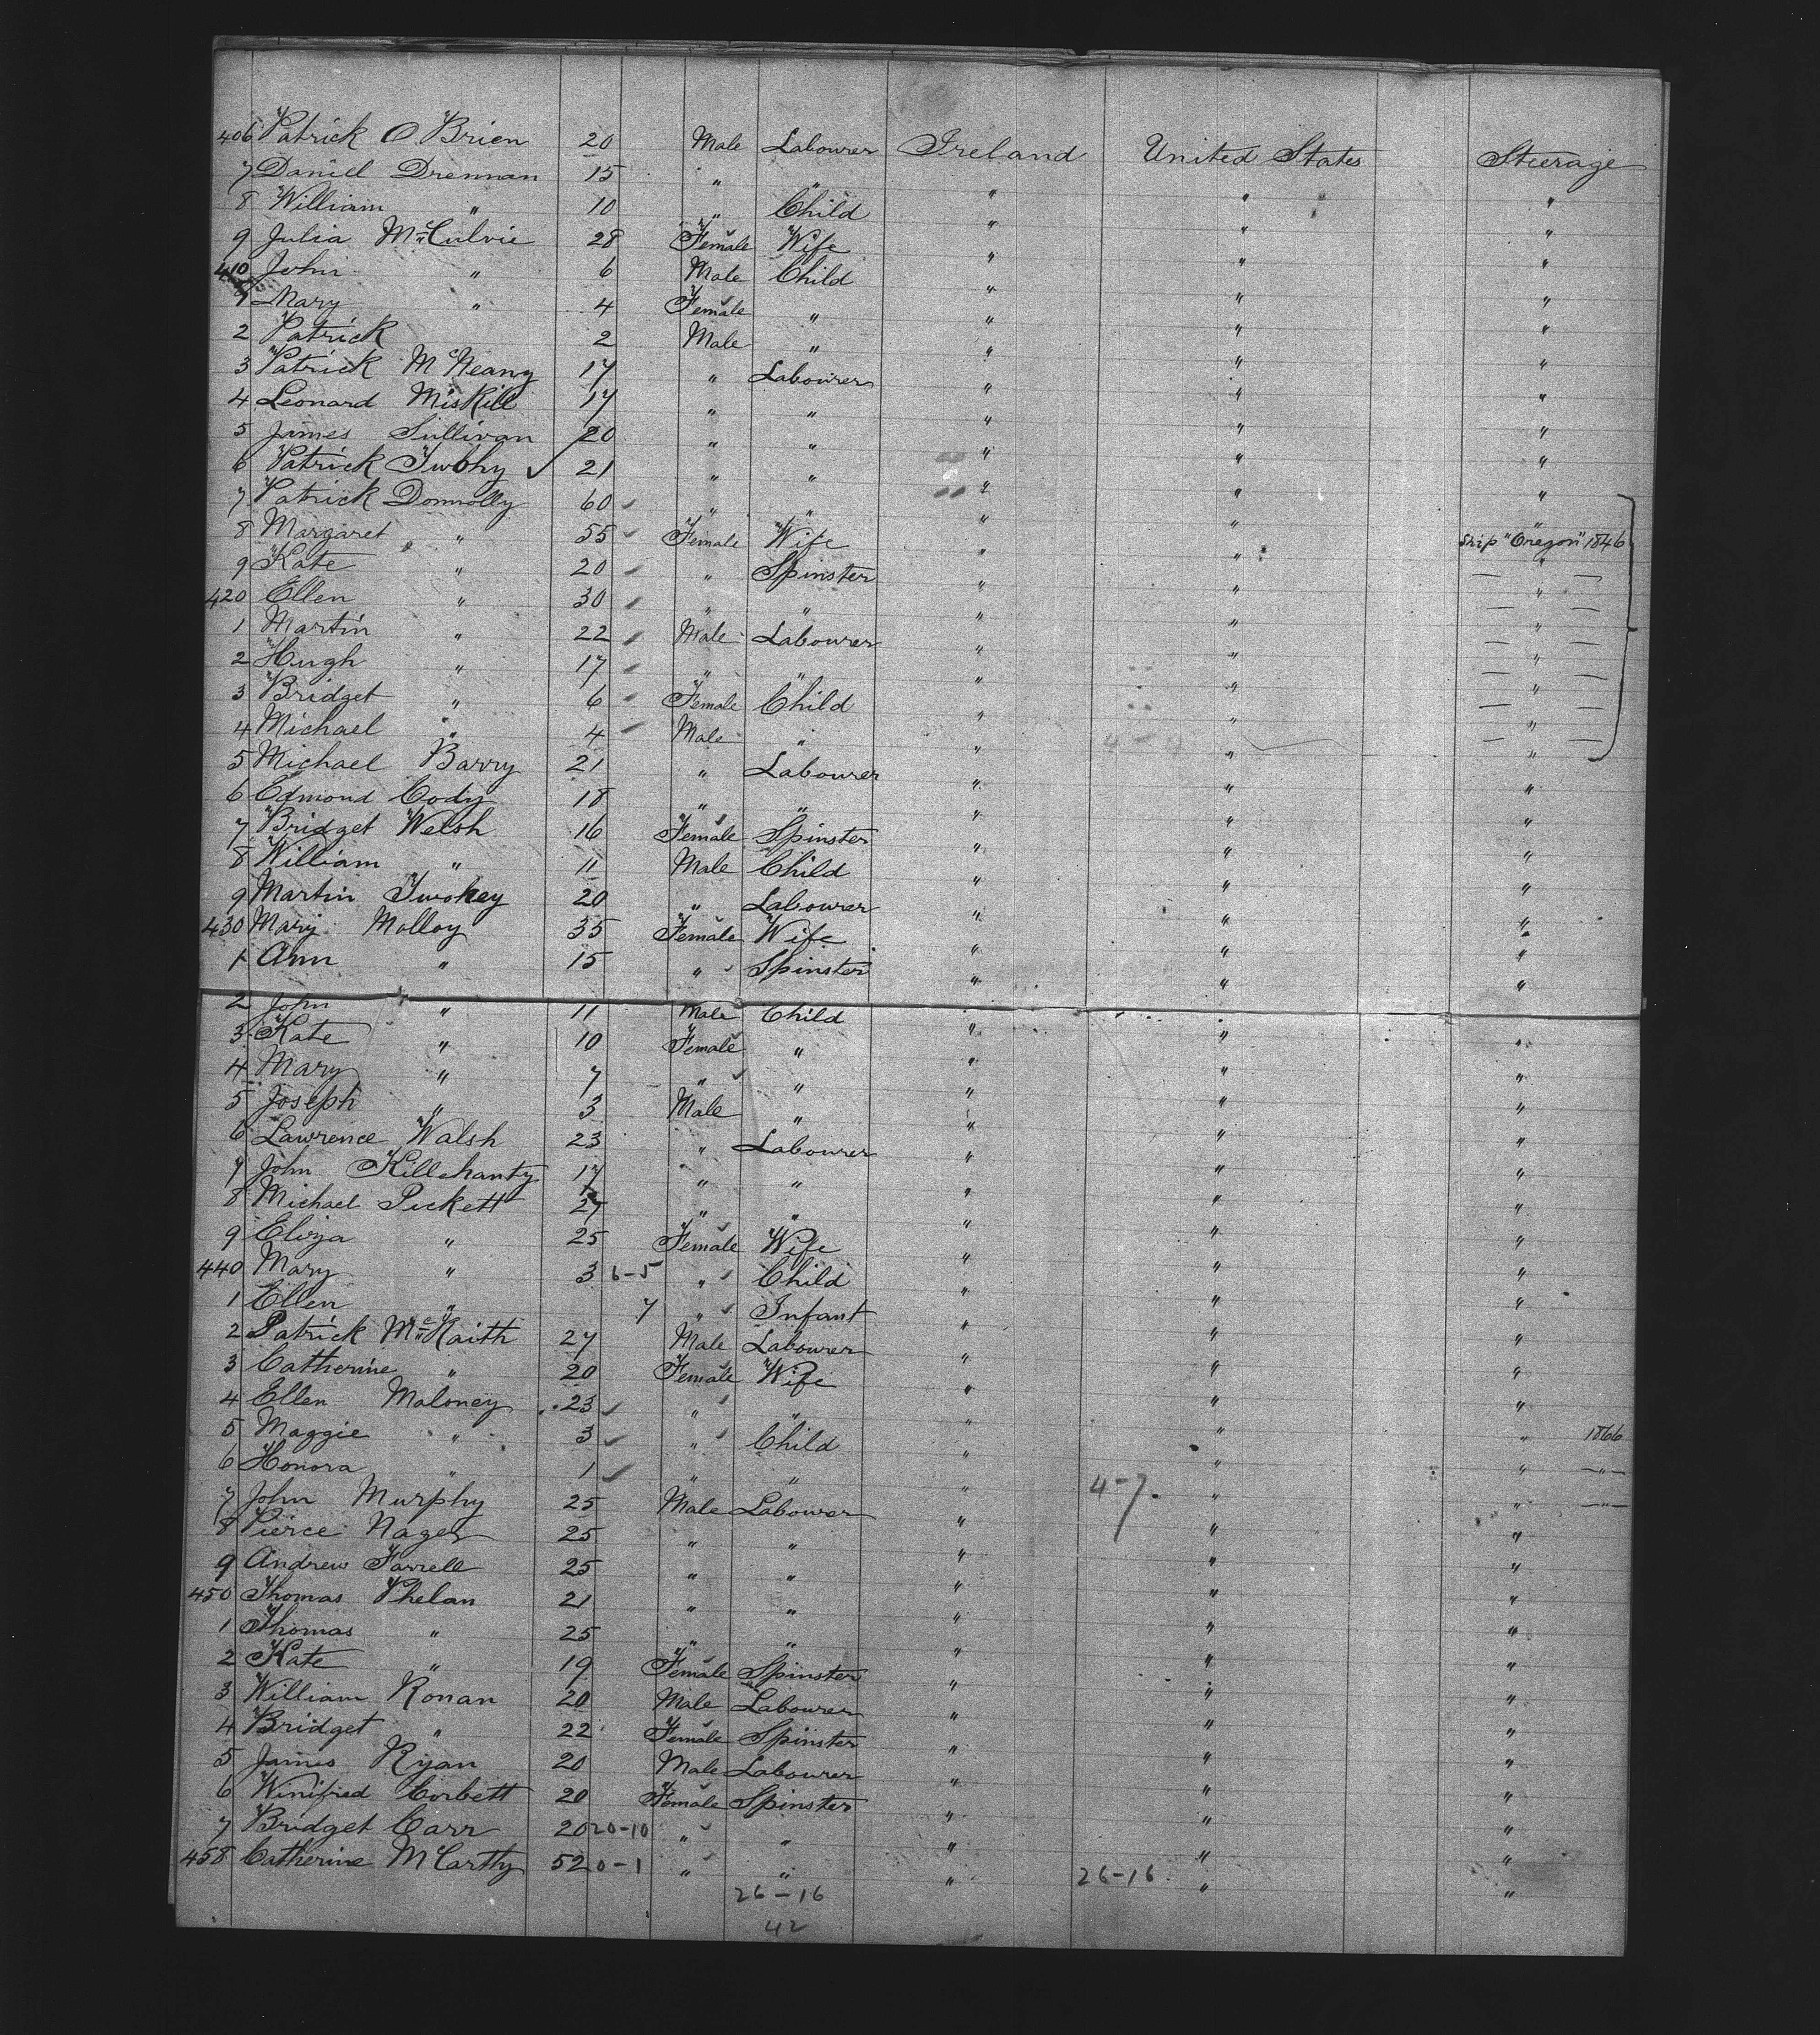 406 Patrick O Brien 20 Male Labourer Ireland United States Steerage
7 Daniel Drennan 15 " " " " "
8 William " 10 " Child " " "
9 Julia McCulvie 28 Female Wife " " "
410 John " 6 Male Child " " "
Mary " 4 Female " " " "
2 Patrick 2 Male " " " "
3 Patrick McNeany 17 " Labourer " " "
4 Leonard Miskill 17 " " " " "
5 James Sullivan 20 " " " " "
6 Patrick Twohy ✓ 21 " " " " "
7 Patrick Donnolly 60 " " " " "
8 Margaret " 55 Female Wife " " Ship "Oregon" 1846
9 Kate " 20 " Spinster " " — " —
420 Ellen " 30 " " " " — " —
1 Martin " 22 Male Labourer " " — " —
2 Hugh " 17 " " " " — " —
3 Bridget " 6 Female Child " " — " —
4 Michael " 4 Male " " " — " —
5 Michael Barry 21 " Labourer " " "
6 Edmond Cody 18 " " " " "
7 Bridget Welsh 16 Female Spinster " " "
8 William " 11 Male Child " " "
9 Martin Twohey 20 " Labourer " " "
430 Mary Molloy 35 Female Wife " " "
1 Ann " 15 " Spinster " " "
2 John " 11 Male Child " " "
3 Kate " 10 Female " " " "
4 Mary " 7 " " " " "
5 Joseph " 3 Male " " " "
6 Lawrence Walsh 23 " Labourer " " "
7 John Killehanty 17 " " " " "
8 Michael Pickett 27 " " " " "
9 Eliza " 25 Female Wife " " "
440 Mary " 3 6-5 " Child " " "
1 Ellen " 7 " Infant " " "
2 Patrick McKaith 27 Male Labourer " " "
3 Catherine " 20 Female Wife " " "
4 Ellen Maloney 23 " " " " "
5 Maggie " 3 " Child " " " 1866
6 Honora " 1 " " " " " —"—
7 John Murphy 25 Male Labourer " 4-7. " " —"—
8 Pierce Nagel 25 " " " " "
9 Andrew Farrell 25 " " " " "
450 Thomas Phelan 21 " " " " "
1 Thomas " 25 " " " " "
2 Kate " 19 Female Spinster " " "
3 William Ronan 20 Male Labourer " " "
4 Bridget " 22 Female Spinster " " "
5 James Ryan 20 Male Labourer " " "
6 Winifred Corbett 20 Female Spinster " " "
7 Bridget Carr 20 20-10 " " " " "
458 Catherine McCartty 52 0-1 " " " 26-16 " "
26-16
42